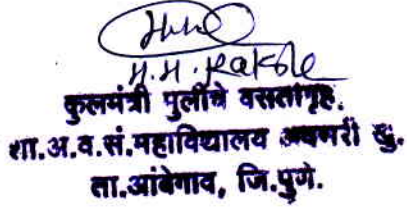 कुलमंत्री मुलींचे वसतीगृह.
शा.अ.व.सं.महाविद्यालय अवसरी खु.
ता.आंबेगाव, जि.पुणे.